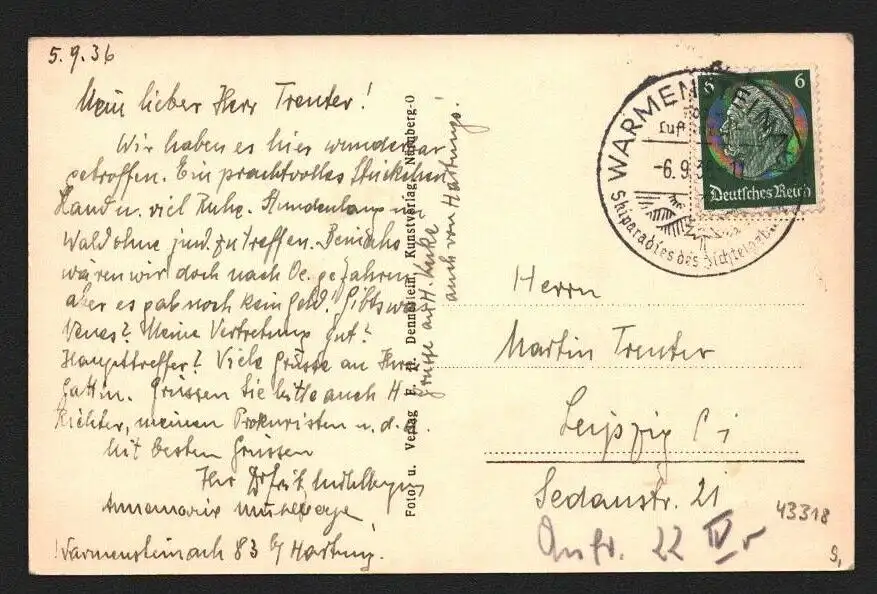 5.9.36
Mein lieber Herr Trenter!
Wir haben es hier wunderbar
getroffen. Ein prachtvolles Stückchen
Land u. viel Ruhe. Stundenlang im
Wald ohne jmd. zu treffen. Beinahe
wären wir doch nach Oe. gefahren
aber es gab noch kein Geld! Gibts was
Neues? Meine Vertretung gut?
Haupttreffer? Viele Grüsse an Ihre
Gattin. Grüssen Sie bitte auch H.
Richter, meinen Prokuristen u.
Mit besten Grüssen
Ihr Dr Fritz
Annemarie
Warmensteinach 83 b/ Hartung.
Grüsse an H.
auch von Hartungs.
Foto u. Verlag Kunstverlag, Nürnberg-O
WARMEN
Luft
-6.9.36
Skiparadies des Fichtelgeb.
6 6
Deutsches Reich
Herrn
Martin Trenter
Leipzig C 1
Sedanstr. 21
22 IV r
43318